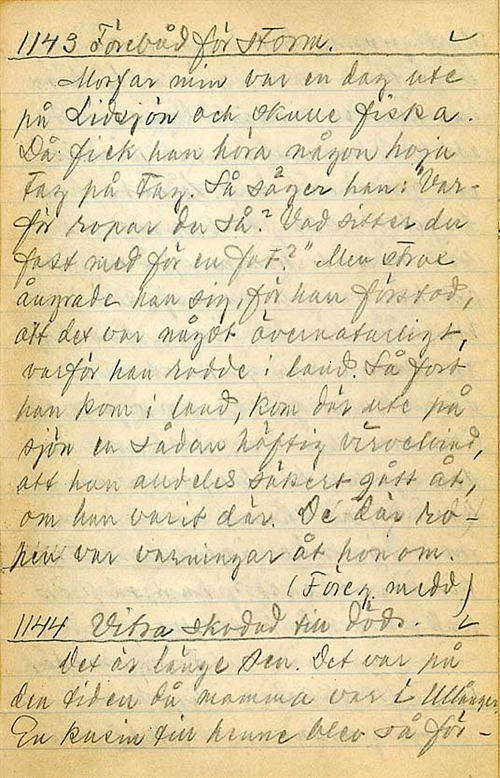 1143 Förebåd för storm.
Morfar min var en dag ute
på Lidsjön och skulle fiska.
Då fick han höra någon hoja
tag på tag. Så säger han: "Var-
för ropar du så? Vad sitter du
fast med för en fot?" Men strax
ångrade han sig, för han förstod,
att det var något övernaturligt,
varför han rodde i land. Så fort
han kom i land, kom där ute på
sjön en sådan häftig virvelvind,
att han alldeles säkert gått åt,
om han varit där. De där ro-
pen var varningar åt honom.
(Föreg. medd)
1144 Vitra skodad till döds.
Det är länge sen. Det var på
den tiden då mamma var i Ullånger.
En kusin till henne blev så för-